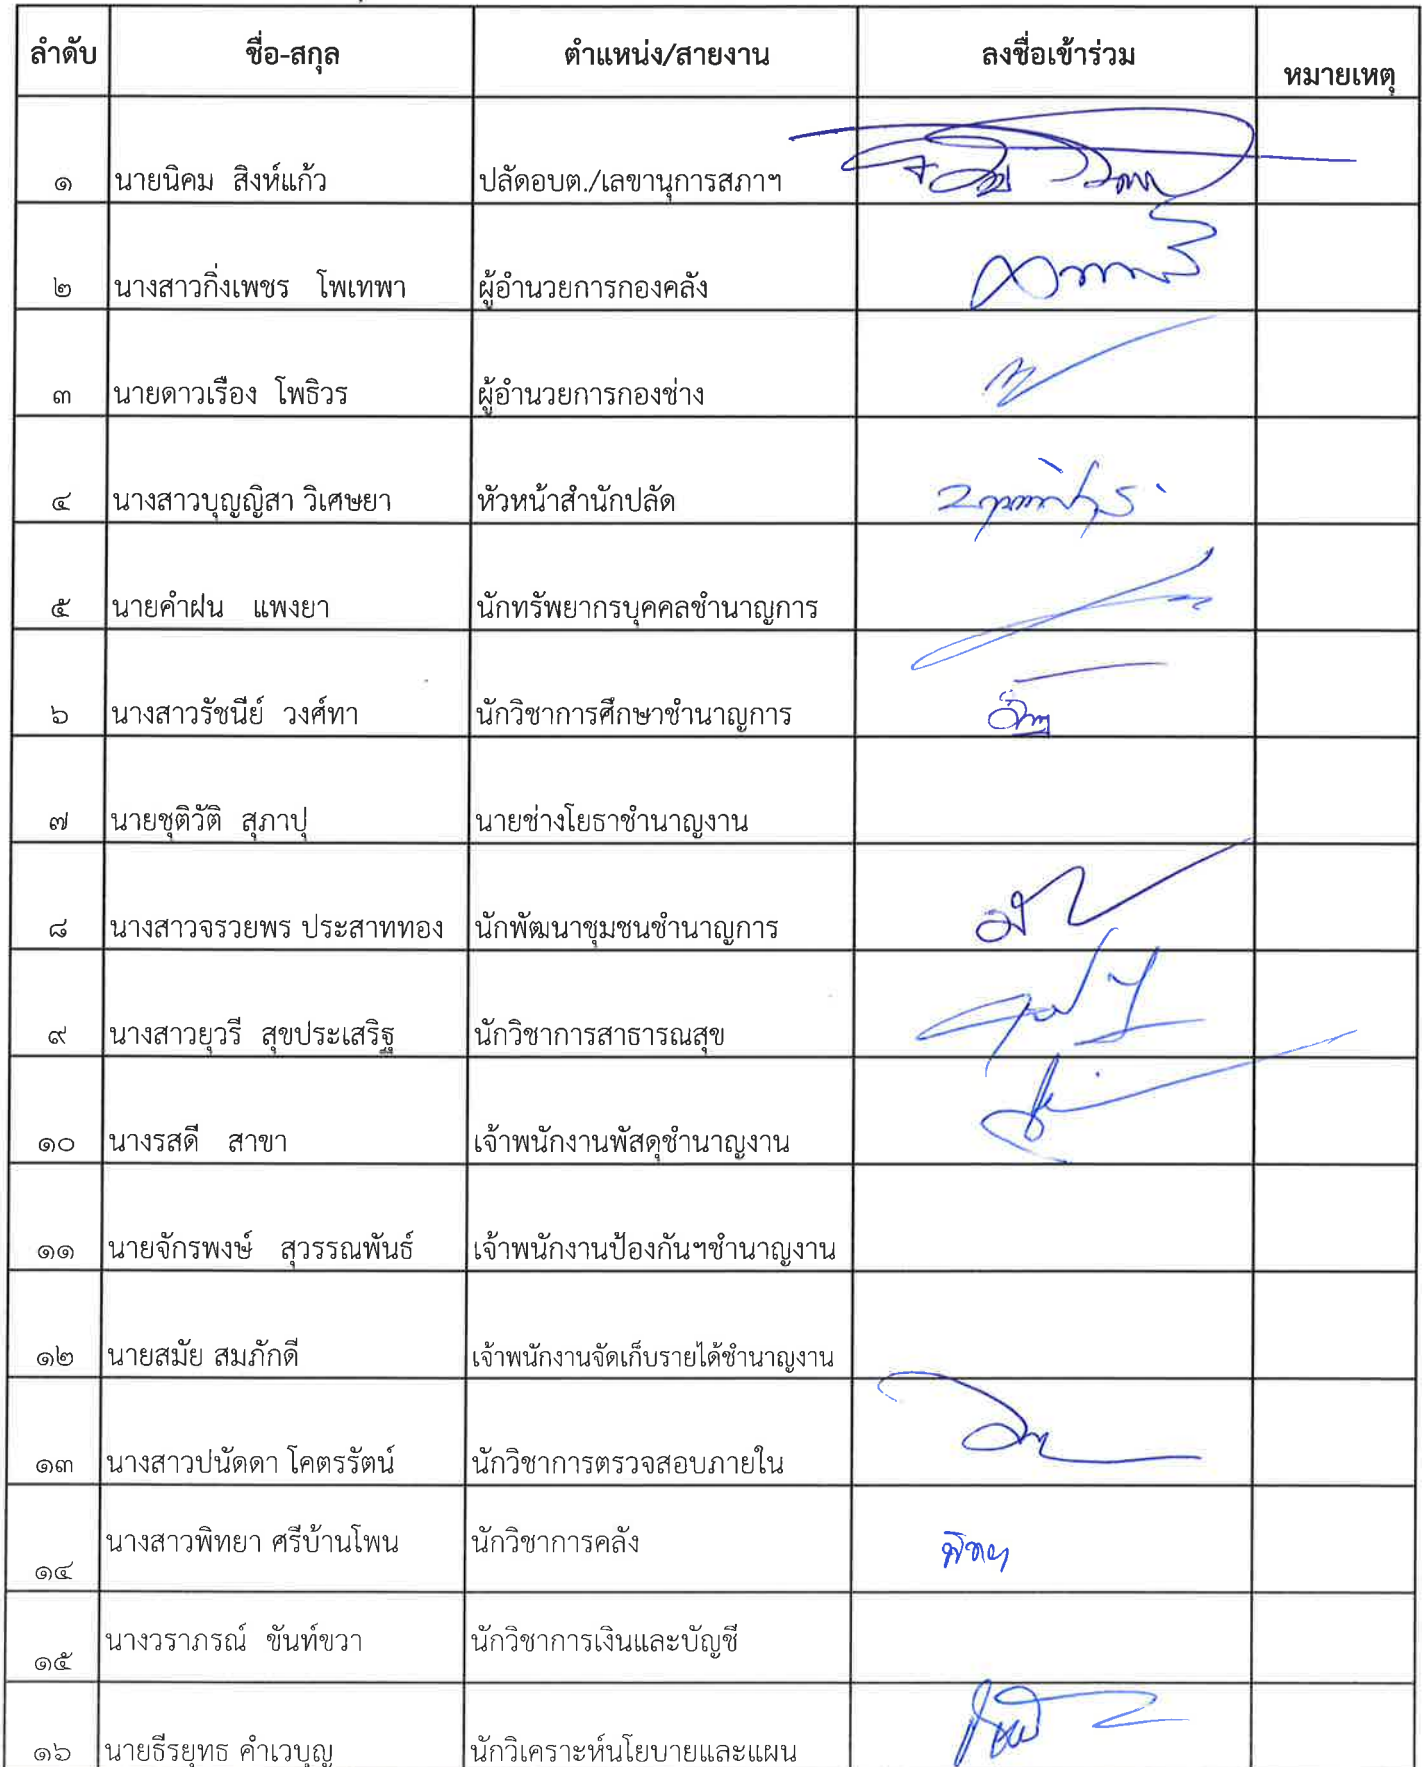 ลำดับ ชื่อ-สกุล ตำแหน่ง/สายงาน ลงชื่อเข้าร่วม หมายเหตุ
๑ นายนิคม สิงห์แก้ว ปลัดอบต./เลขานุการสภาฯ
๒ นางสาวกิ่งเพชร โพเทพา ผู้อำนวยการกองคลัง
๓ นายดาวเรือง โพธิวร ผู้อำนวยการกองช่าง
๔ นางสาวบุญญิสา วิเศษยา หัวหน้าสำนักปลัด
๕ นายคำฝน แพงยา นักทรัพยากรบุคคลชำนาญการ
๖ นางสาวรัชนีย์ วงศ์ทา นักวิชาการศึกษาชำนาญการ
๗ นายชุติวัติ สุภาปุ นายช่างโยธาชำนาญงาน
๘ นางสาวจรวยพร ประสาททอง นักพัฒนาชุมชนชำนาญการ
๙ นางสาวยุวรี สุขประเสริฐ นักวิชาการสาธารณสุข
๑๐ นางรสดี สาขา เจ้าพนักงานพัสดุชำนาญงาน
๑๑ นายจักรพงษ์ สุวรรณพันธ์ เจ้าพนักงานป้องกันฯชำนาญงาน
๑๒ นายสมัย สมภักดี เจ้าพนักงานจัดเก็บรายได้ชำนาญงาน
๑๓ นางสาวปนัดดา โคตรรัตน์ นักวิชาการตรวจสอบภายใน
๑๔ นางสาวพิทยา ศรีบ้านโพน นักวิชาการคลัง พิทยา
๑๕ นางวราภรณ์ ขันท์ขวา นักวิชาการเงินและบัญชี
๑๖ นายธีรยุทธ คำเวบุญ นักวิเคราะห์นโยบายและแผน